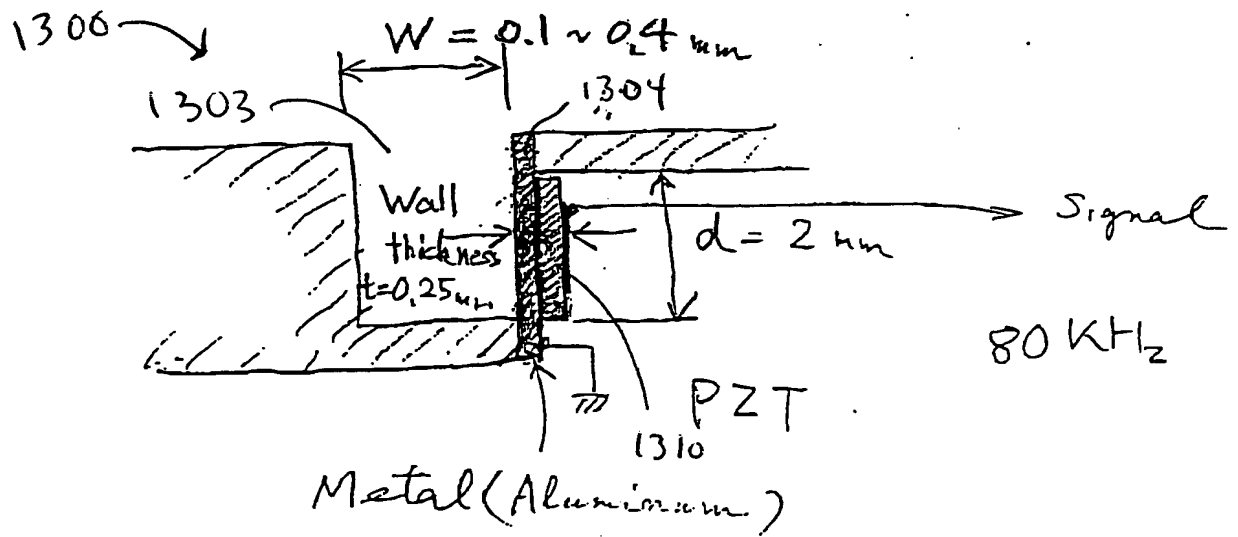 1300
W = 0.1 ~ 0.4 mm
1303
1304
Wall
thickness
t=0.25mm
Signal
d = 2 mm
80 KHz
PZT
1310
Metal (Aluminum)